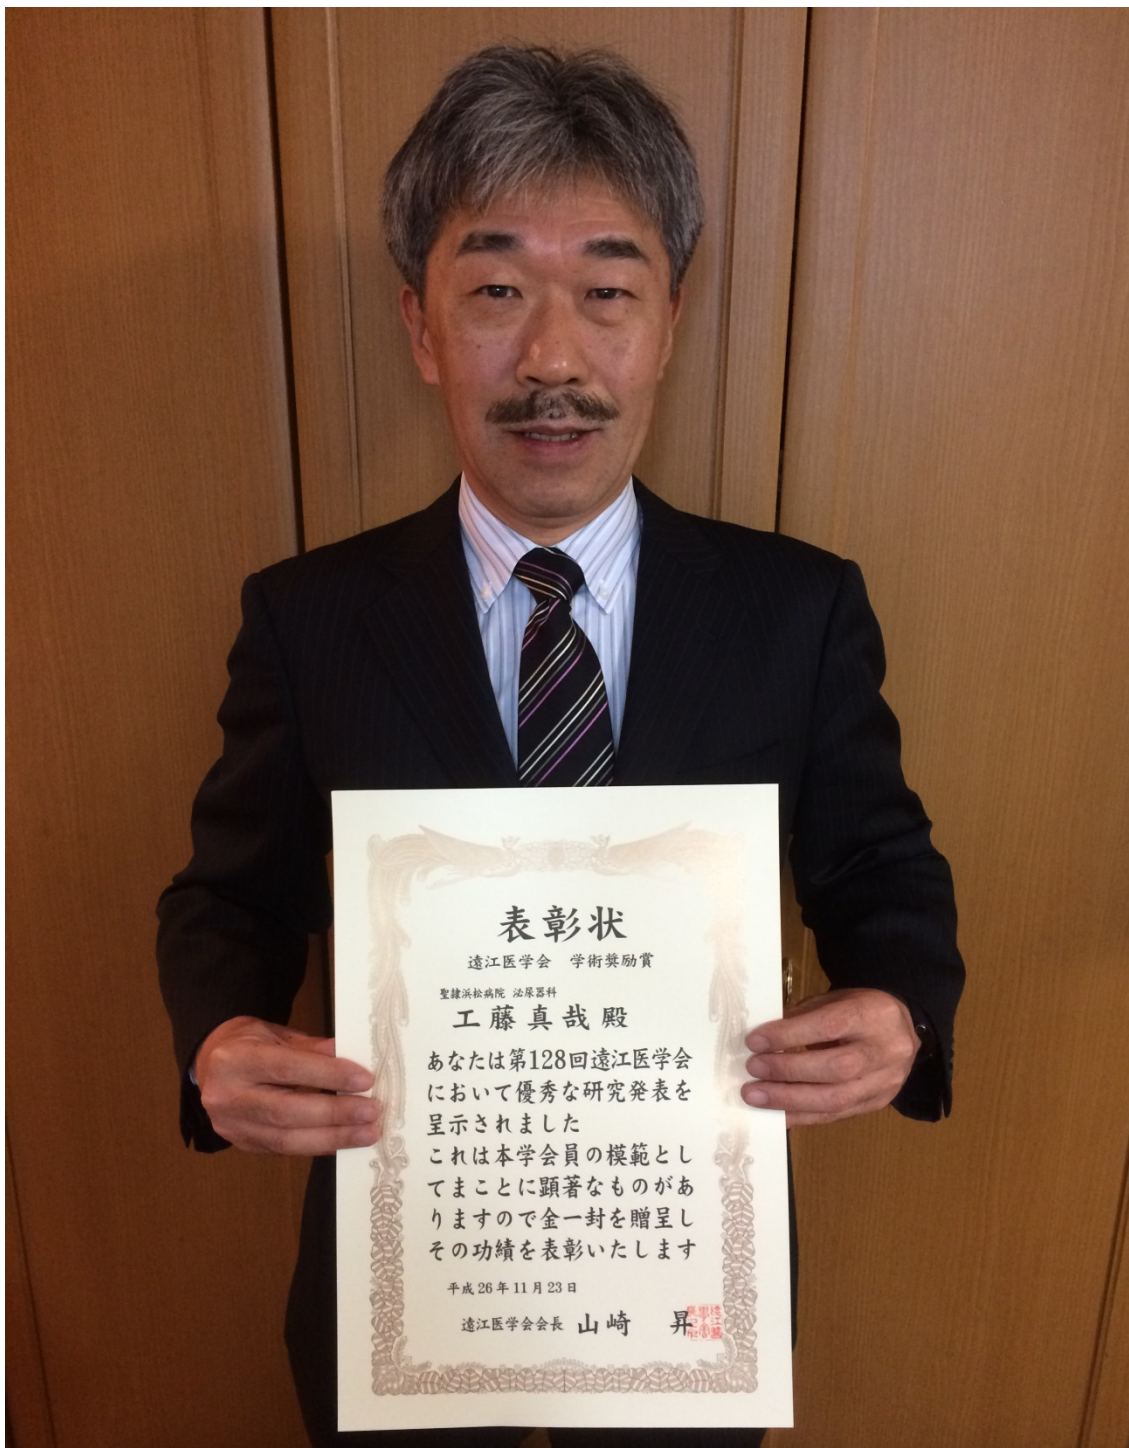 表彰状
遠江医学会 学術奨励賞
聖隷浜松病院 泌尿器科
工藤真哉殿
あなたは第128回遠江医学会
において優秀な研究発表を
呈示されました
これは本学会員の模範とし
てまことに顕著なものがあ
りますので金一封を贈呈し
その功績を表彰いたします
平成26年11月23日
遠江医学会会長 山崎 昇